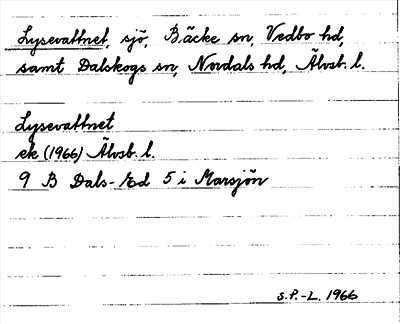 Lysevattnet, sjö, Bäcke sn, Vedbo hd,
samt Dalskogs sn, Nordals hd, Älvsb. l.
Lysevattnet
ek (1966) Älvsb. l.
9 B Dals-Ed 5 i Marsjön
S.P.-L. 1966